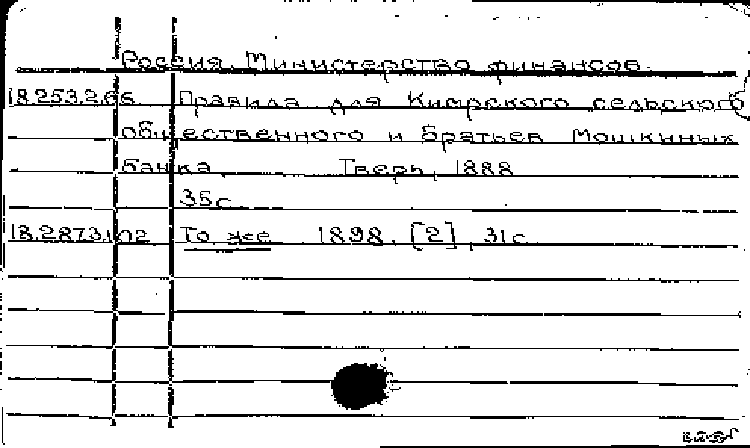 Россия. Министерство финансов.
18.253.2.66. Правила для Кимрского сельского
общественного и братьев Мошкиных
банка. Тверь, 1888
35с.
18.287.3.102 То же 1898. [2], 31с.